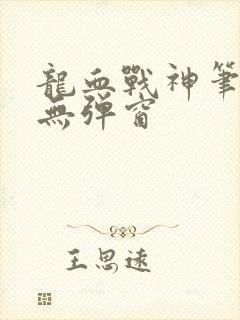 龍血戰神筆
無彈窗
王思遠